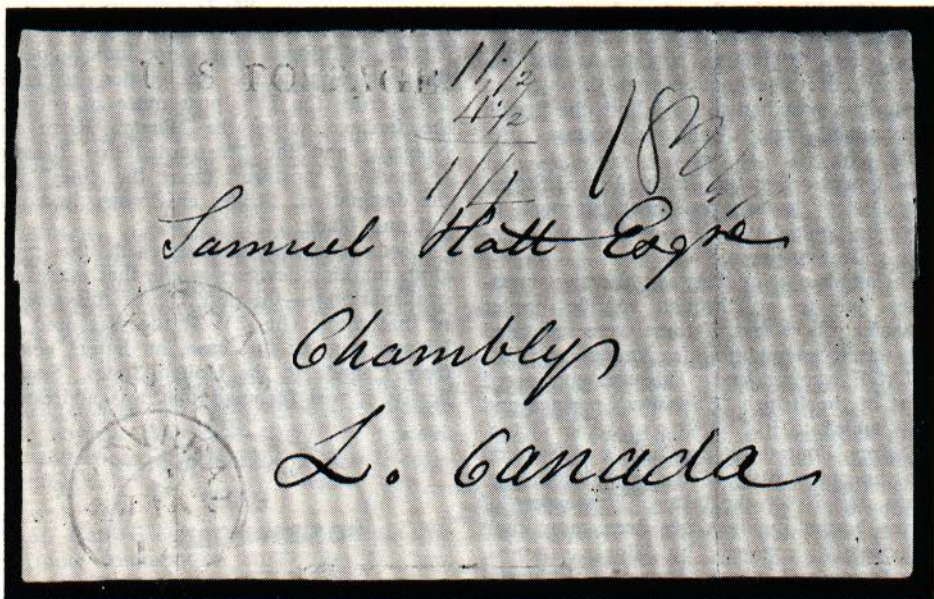 U S POSTAGE
11 1/2
4 1/2
1/4
18 3/4
Samuel Hatt Esqre
Chambly
L. Canada
MONTREAL